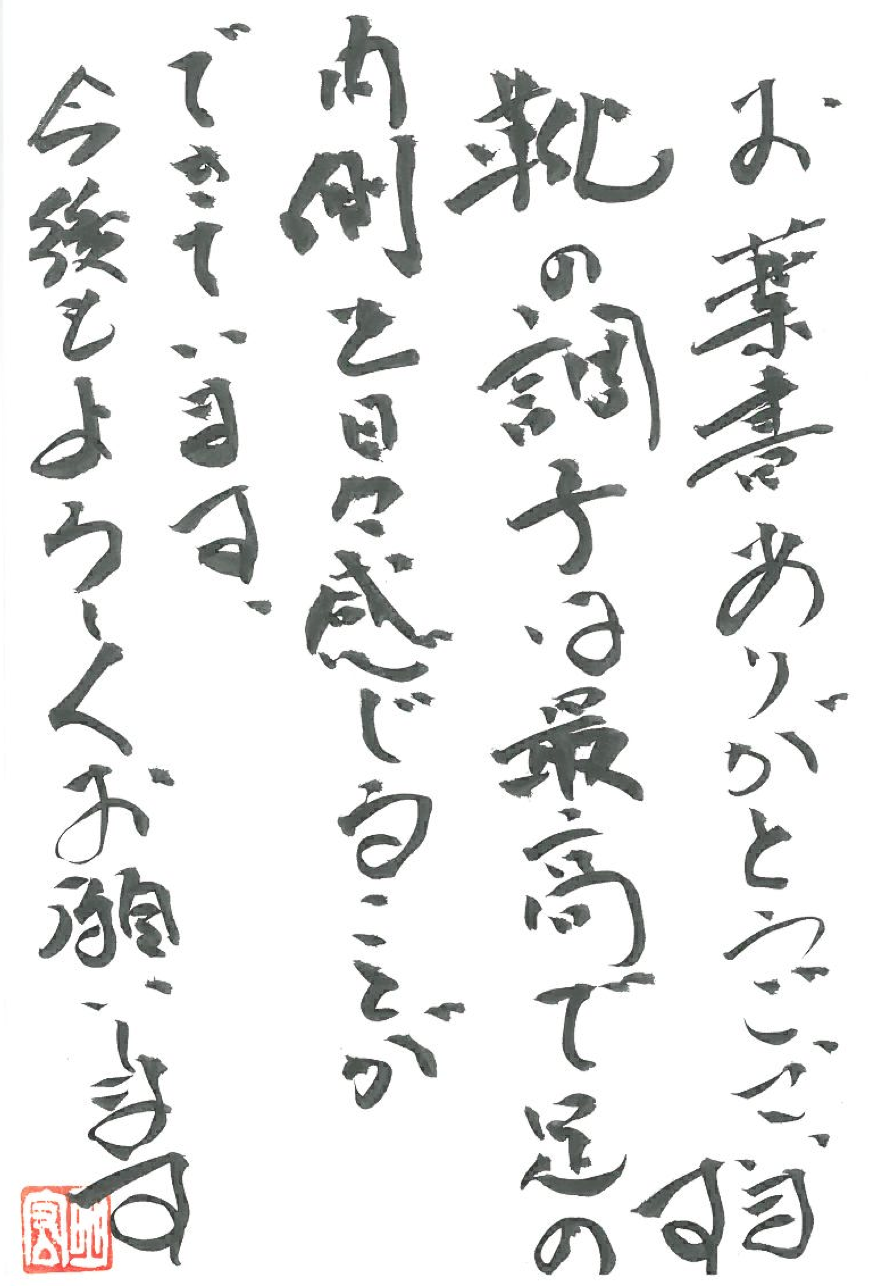 お葉書ありがとうございます
靴の調子は最高で足の
内側を日々感じることが
できています、
今後もよろしくお願いします